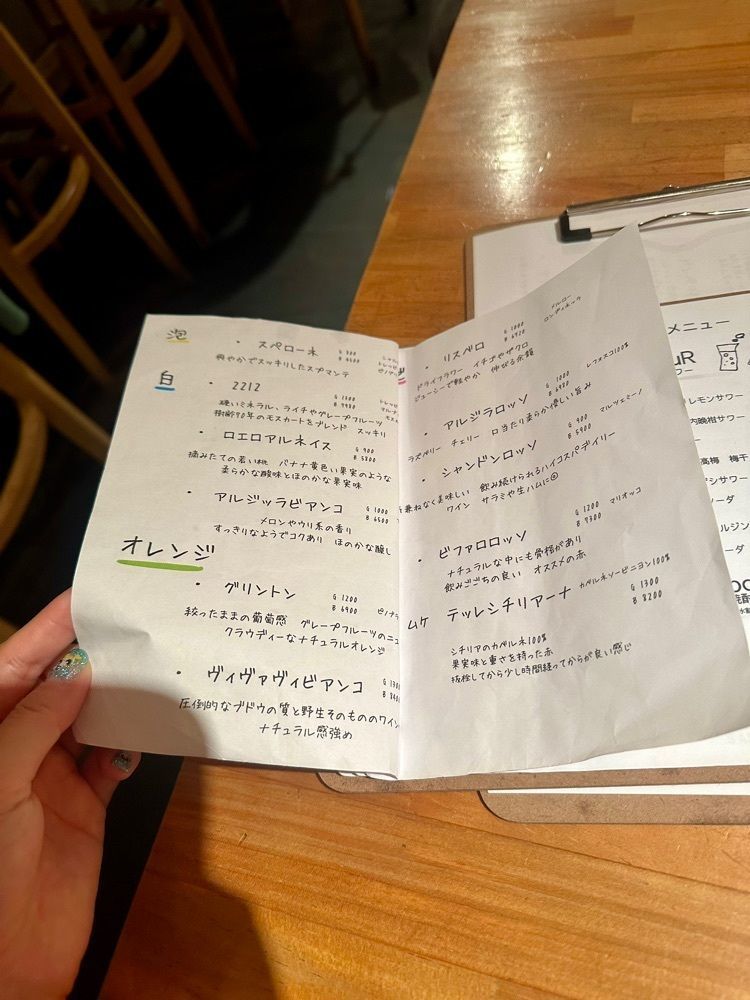 泡
・ スペローネ G 900
B 4600
爽やかでスッキリしたスプマンテ
白
・ 2212 G 1200
硬いミネラル、ライチやグレープフルーツ
樹齢90年のモスカートをブレンド スッキリ
・ ロエロアルネイス G 900
B 5800
摘みたての若い桃 バナナ黄色い果実のような
柔らかな酸味とほのかな果実味
・ アルジッラビアンコ G 1000
B 6500
メロンやウリ系の香り
すっきりなようでコクあり ほのかな醸し
オレンジ
・ グリントン G 1200
B 6900
搾ったままの葡萄感 グレープフルーツのニュ
クラウディーなナチュラルオレンジ
・ ヴィヴァヴィビアンコ
圧倒的なブドウの質と野生そのもののワイン
ナチュラル感強め
・ リスペロ G 1000
B 6920
メルロー
ドライフラワー イチゴやザクロ
ジューシーで軽やか 伸びる余韻
・ アルジラロッソ G 1000
レフォスコ100%
ラズベリー チェリー 口当たり柔らか優しい旨み
・ シャンドンロッソ G 900
B 5900
マルツェミーノ
兼ねなく美味しい 飲み続けられるハイコスパデイリー
ワイン サラミや生ハムに◎
・ ビファロロッソ G 1200
B 7300
マリオッコ
ナチュラルな中にも骨格があり
飲みごごちの良い オススメの赤
ムケ テッレシチリアーナ カベルネソービニヨン100%
G 1300
B 8200
シチリアのカベルネ100%
果実味と重さを持った赤
抜栓してから少し時間経ってからが良い感じ
メニュー
レモンサワー
内晩柑サワー
高梅 梅干
シサワー
ーダ
ルジン
ーダ